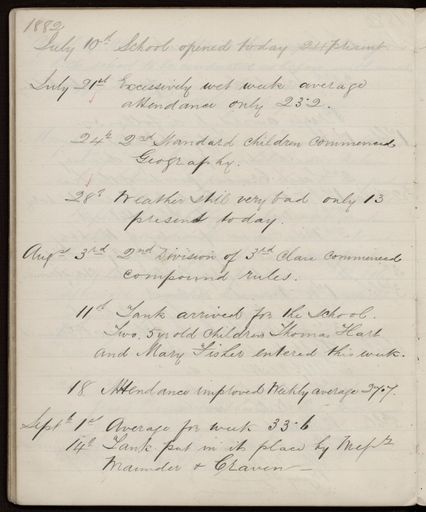 1882
July 10th School opened today 24 present
July 21st Excessively wet week average
attendance only 23.2.
24th 2nd Standard children commenced
Geography.
28th Weather still very bad only 13
present today.
Augst 3rd 2nd Division of 3rd Class commenced
compound rules.
11th Tank arrived for the School.
Two, 5 yr old children Thomas Hart
and Mary Fisher entered this week.
18 Attendance improved Weekly average 37.7.
Septbr 1st Average for week 33.6
14th Tank put in its place by Messrs
Maunder & Craven —